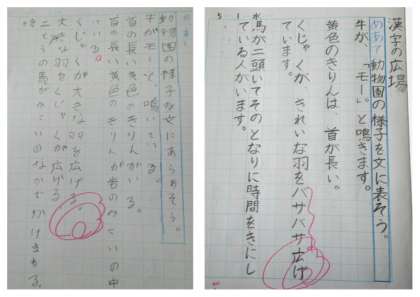 動物園の様子を文にあらわそう。
牛がモーと、鳴いている。
首の長い黄色のきりんがいる。
首の長い黄色のきりんが
いる。
くじゃくが大きな羽を広げる
大きな羽をくじゃくが広げる
漢字の広場
めあて 動物園の様子を文に表そう。
牛が、「モー」と鳴きます。
黄色のきりんは、首が長い。
くじゃくが、きれいな羽をバサバサ広げ
ています。
馬が二頭いてそのとなりに時間をきにし
ている人がいます。